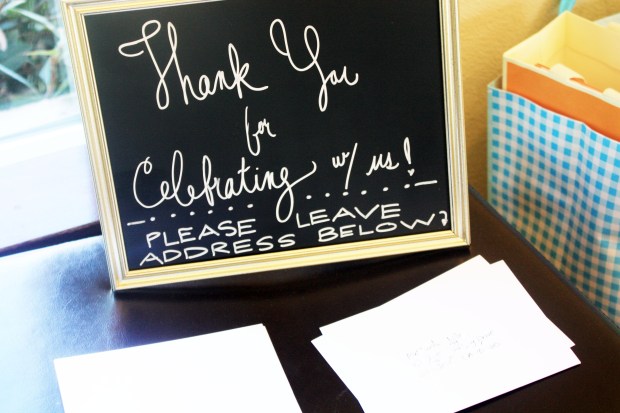 Thank You
for
Celebrating w/ us!
PLEASE LEAVE
ADDRESS BELOW